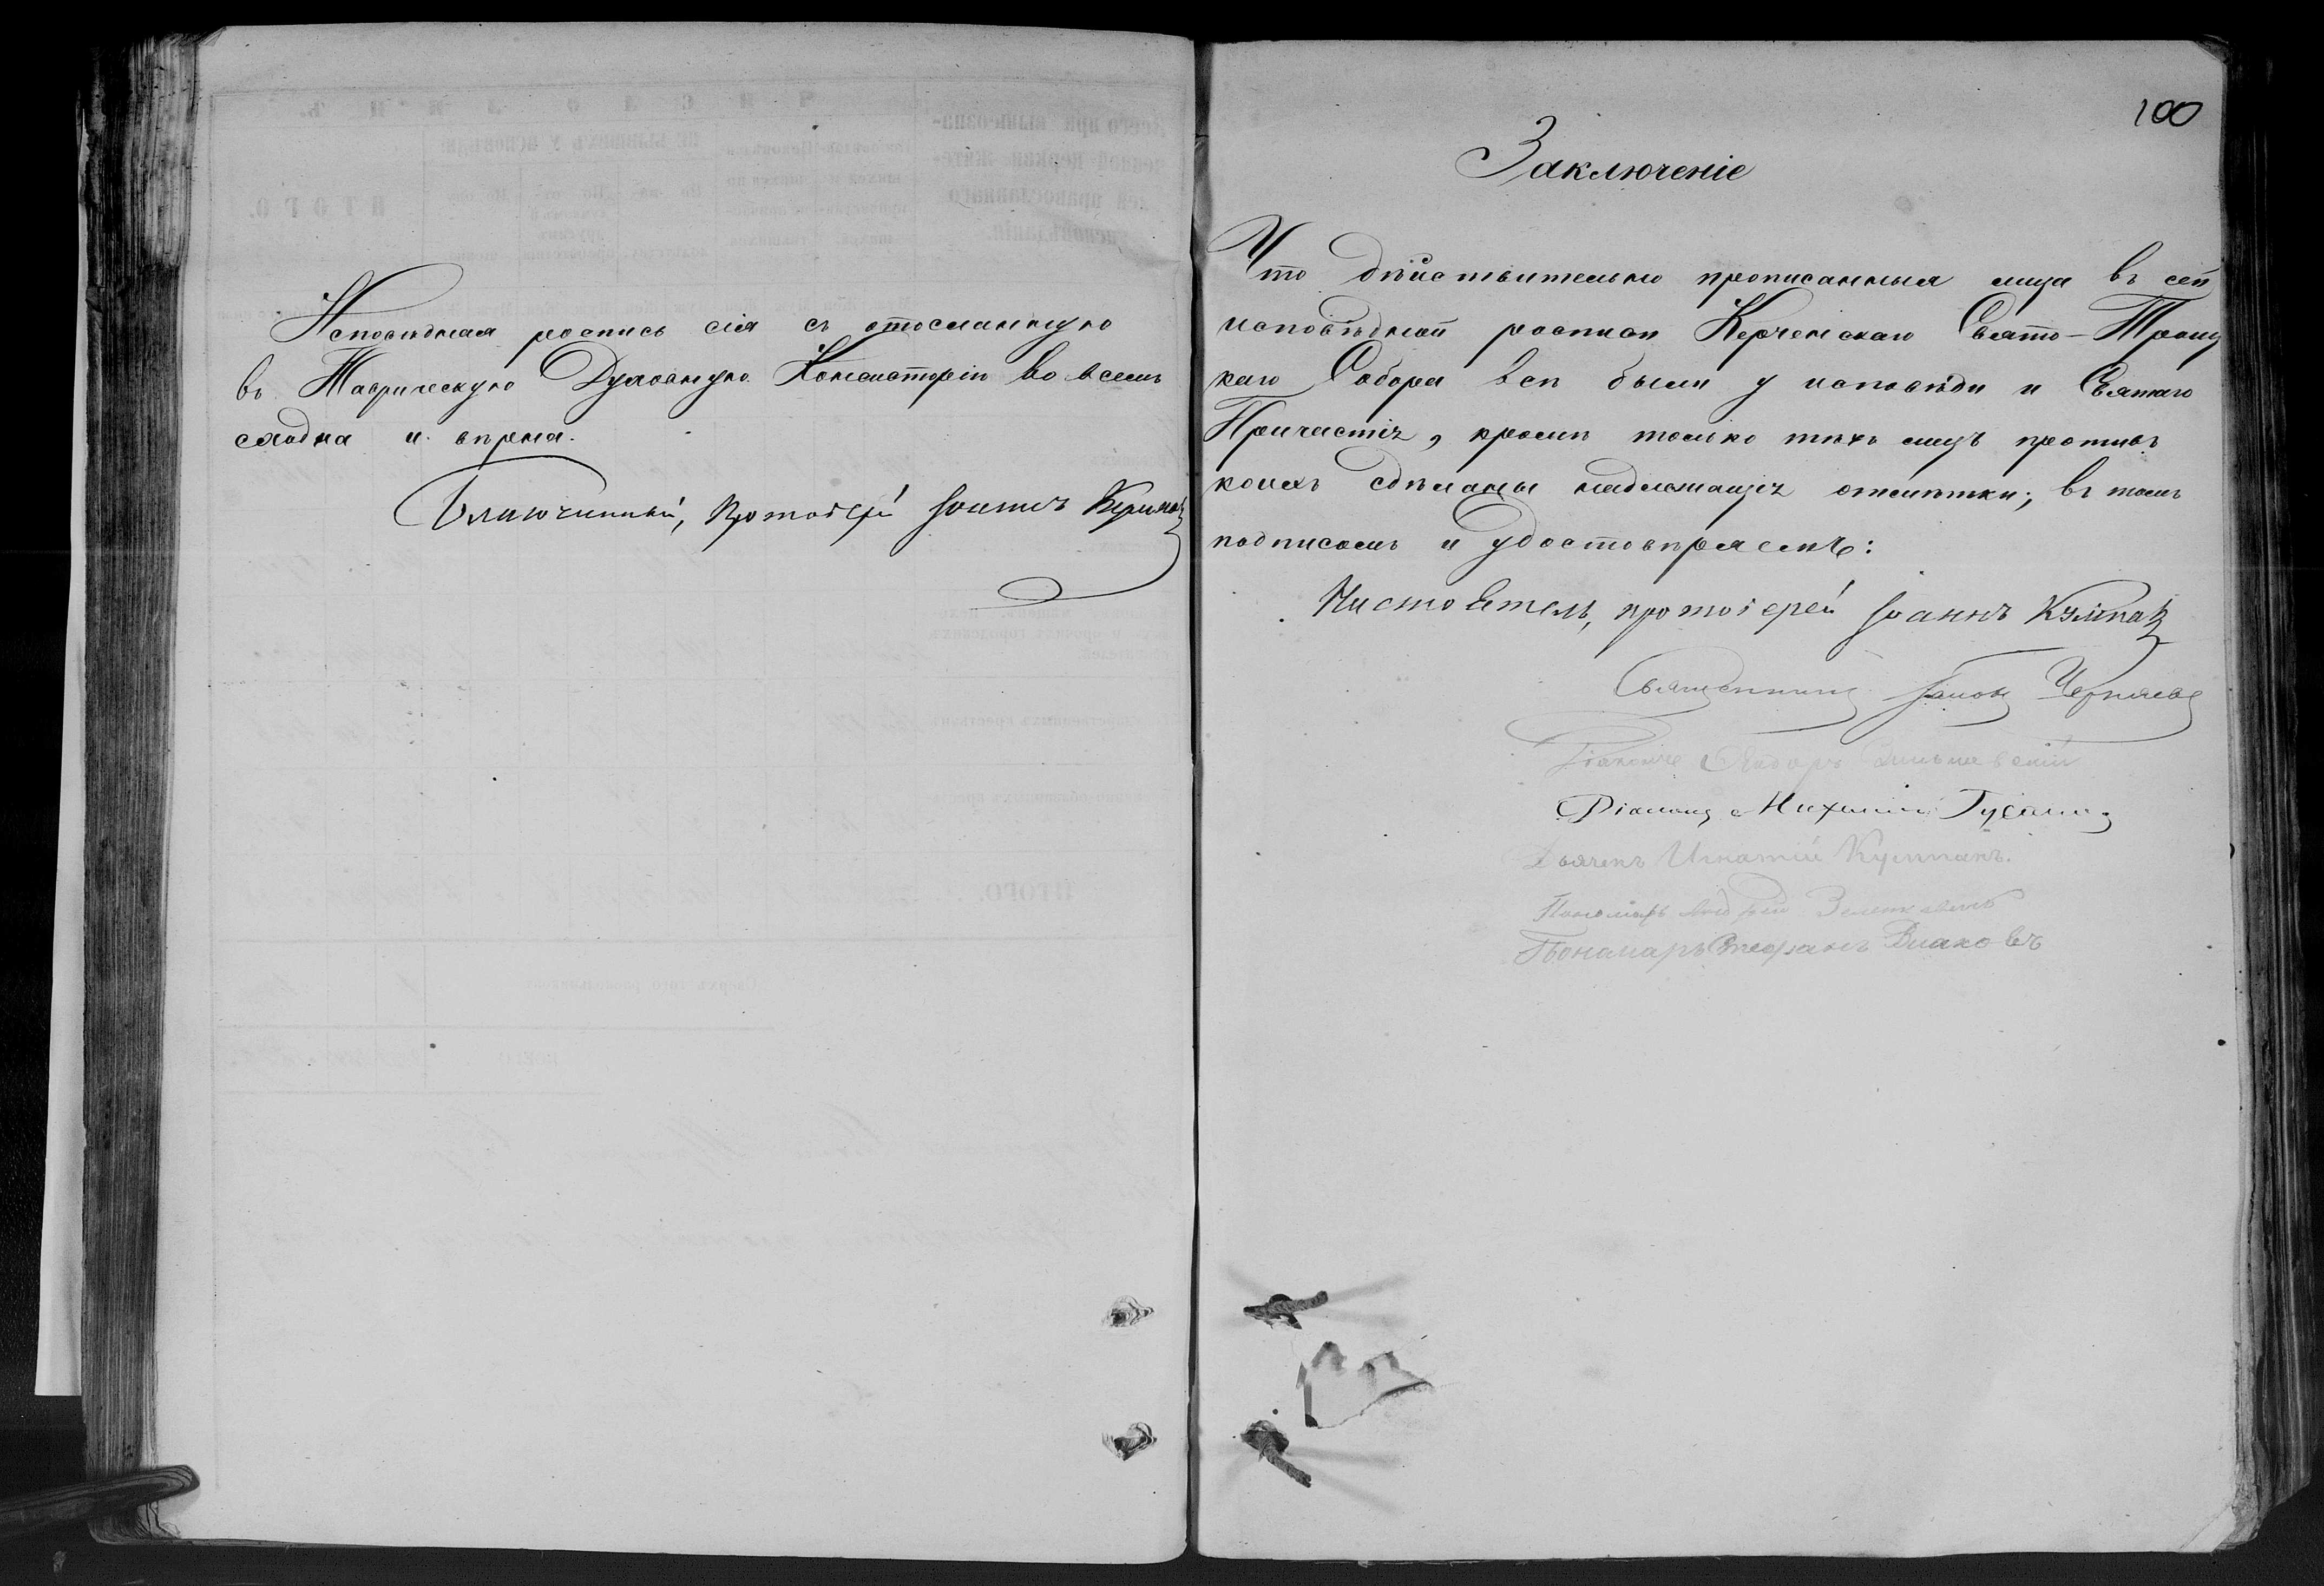 Исповѣдная роспись сія съ отосланную
въ Таврическую Духовную Консисторію во всемъ
сходна и вѣрна.
Благочинный, протоіерей Іоаннъ Кумпанъ
100
Заключеніе
Что дѣйствительно прописанныя лица въ сей
исповѣдной росписи Керченскаго Свято-Троиц
каго Собора всѣ были у исповѣди и Святаго
Причастія, кромѣ только тѣхъ лицъ противъ
коихъ сдѣланы надлежащія отмѣтки; въ томъ
подписомъ и удостовѣряемъ:
Настоятель, протоіерей Іоаннъ Кумпанъ
Священникъ Іаковъ Черняевъ
Діаконъ
Діаконъ Михаилъ
Дьячекъ Игнатій Кумпанъ.
Пономарь Андрей
Пономарь Стефанъ